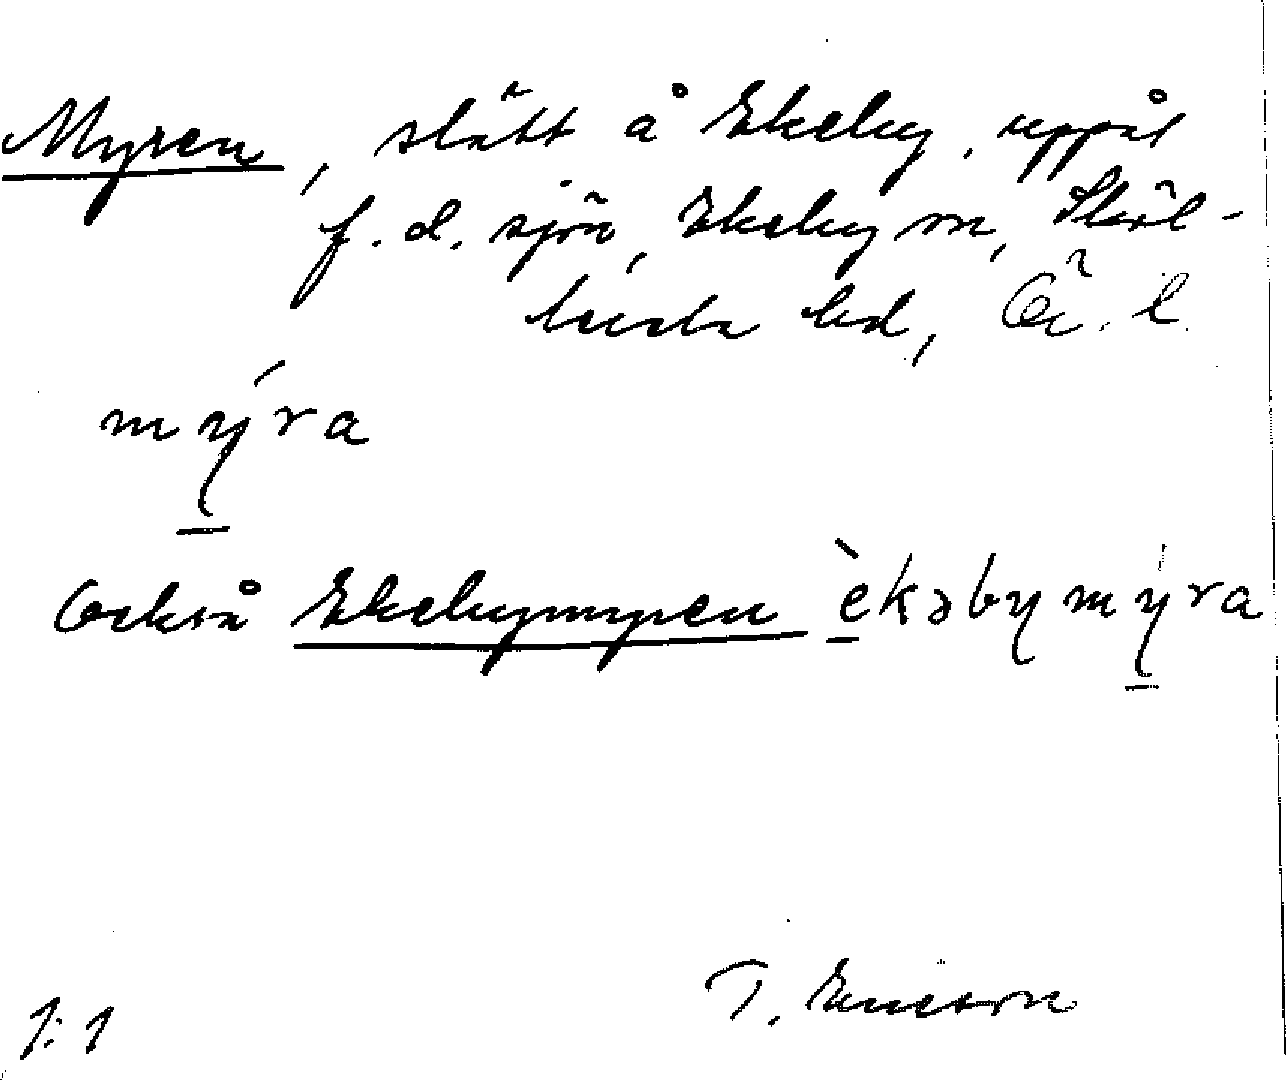 Myren, slätt å Ekeby, uppåt
f.d. sjön, Ekeby sn, Sköl-
lersta hd, Ör. l.
mýra
Också Ekebymyren èkəbymýra
T. Ericson
1:1